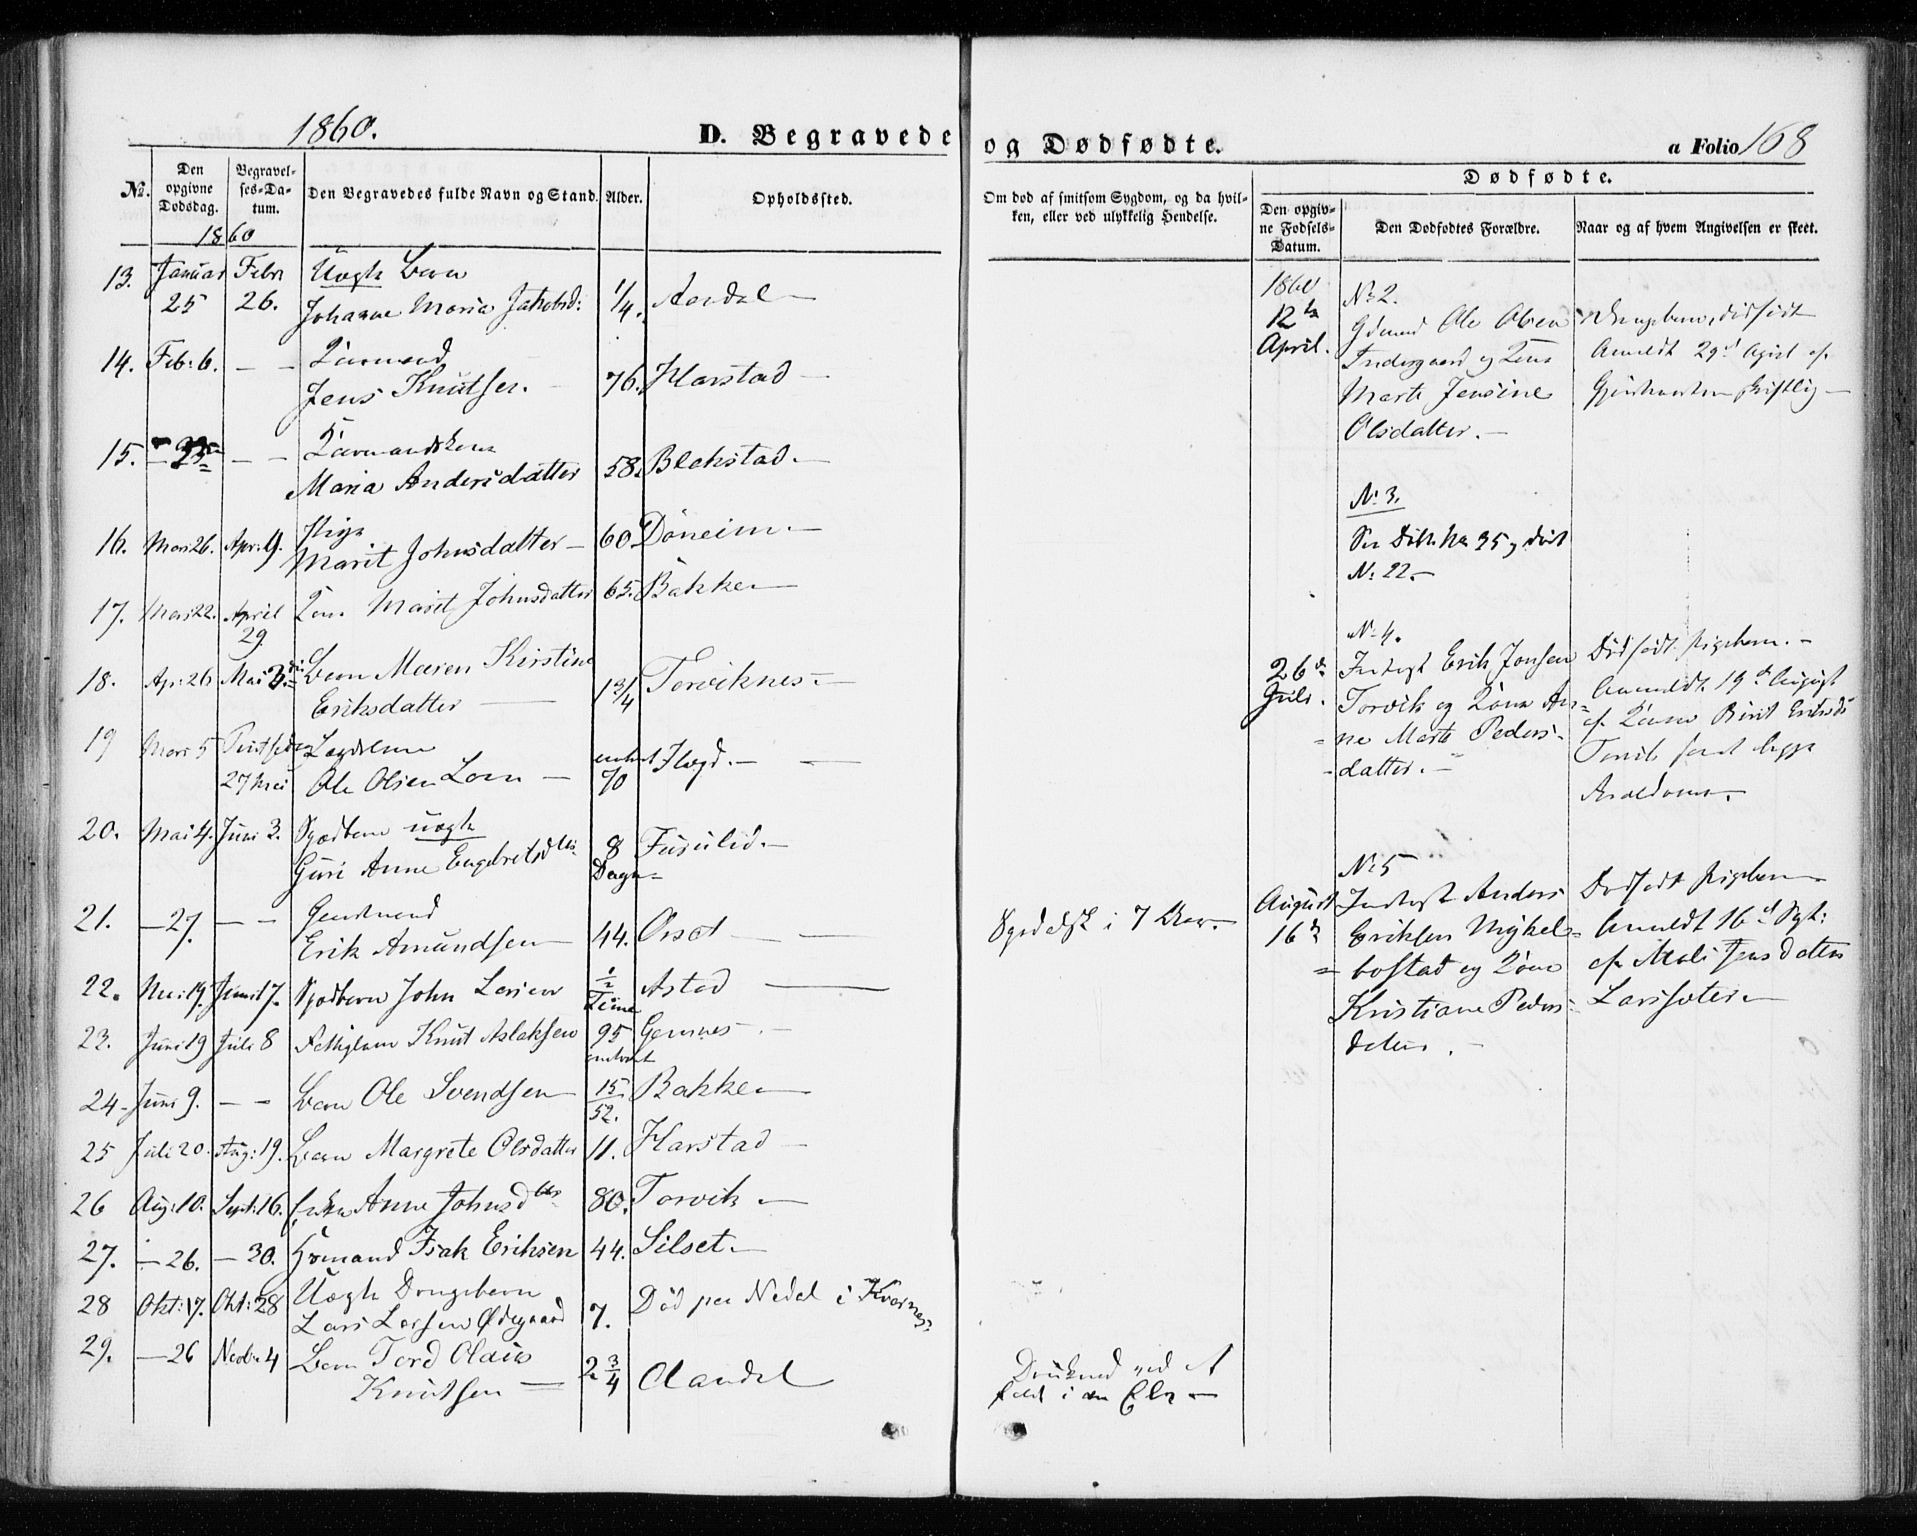 1860.
D. Begravede og Dødfødte.
a Folio 168
No.
Den opgivne Dødsdag.
Begravelses-Datum.
Den Begravedes fulde Navn og Stand.
Alder.
Opholdssted.
Om død af smitsom Sygdom, og da hvilken, eller ved ulykkelig Hendelse.
Dødfødte.
Den opgivne Fødsels-Datum.
Den Dødfødtes Forældre.
Naar og af hvem Angivelsen er skeet.
1860
13. Januar 25 Febr 26. Uægte Barn
Johanne Maria Jakobsd: 1/4. Aandal
14. Feb: 6. — —
Jens Knutsen. 76. Harstad
15. — —
Maria Andersdatter 58. Blekstad.
16. Mars 26. Apr: 9. Pige
Marit Johnsdatter 60 Døneim
17. Mars 22. April 29. Marit Johnsdatter 65. Bakken
18. Ap: 26 Mai Barn Maren Kirstine
Eriksdatter 1 3/4 Torviknes
19 Mars 5 27 Mai Lægdslem
Ole Olsen omtrent 70 Høgd.
20. Mai 4. Juni 3. Spædbarn uægte
Guri Anne Engebretsdter 8 Dage
21. — 27. — — Gaardmand
Erik Amundsen 44. Orset
22. Juni 17. Spædbarn John Larsen 1/2 Time Astad
23. Juni 19 Juli 8 Fattiglem Knut Aslaksen 95 omtrent Gemnes
24 Juni 9. — — Barn Ole Svendsen 15/52. Bakken
25 Juli 20. Aug: 19. Barn Margrete Olsdatter 11. Harstad
26 Aug: 10. Sept: 16. Enke Anne Johnsdter 80. Torvik
27. — 26. — 30. Isak Eriksen 44. Silset
28 Okt: 17. Okt: 28 Uægte Drengebarn
Lars Larsen Ødegaard 7. Død paa Nedal i Kvernes
29. — 26 Novbr 4 Barn Tord Olaus
Knutsen 2 3/4 Aandal
i 7 Uker
Drukned ved at
falde i en Elv
1860
12te April.
No 2.
Gdmand Ole Olsen
Indergaard og Kone
Marte Jensine
Olsdatter.
Drengebarn, dødfødt
Anmeldt 29de April af
Gjordemoderen skriftlig
No 3.
No 35, død
No 22.
26de Juli.
No 4.
Inderst Erik Jonsen
Torvik og Kone An-
ne Marte Peders-
datter.
Dødfødt Pigebarn.
Anmeldt 19de August
af Kone Birit Eriksd:
Torvik
August 16de
No 5
Inderst Anders
Eriksen Mykel-
bostad og Kone
Kristiane Peders-
datter.
Dødfødt Pigebarn
Anmeldt 16de Sept:
af Mali Jensdatter
Larssæter